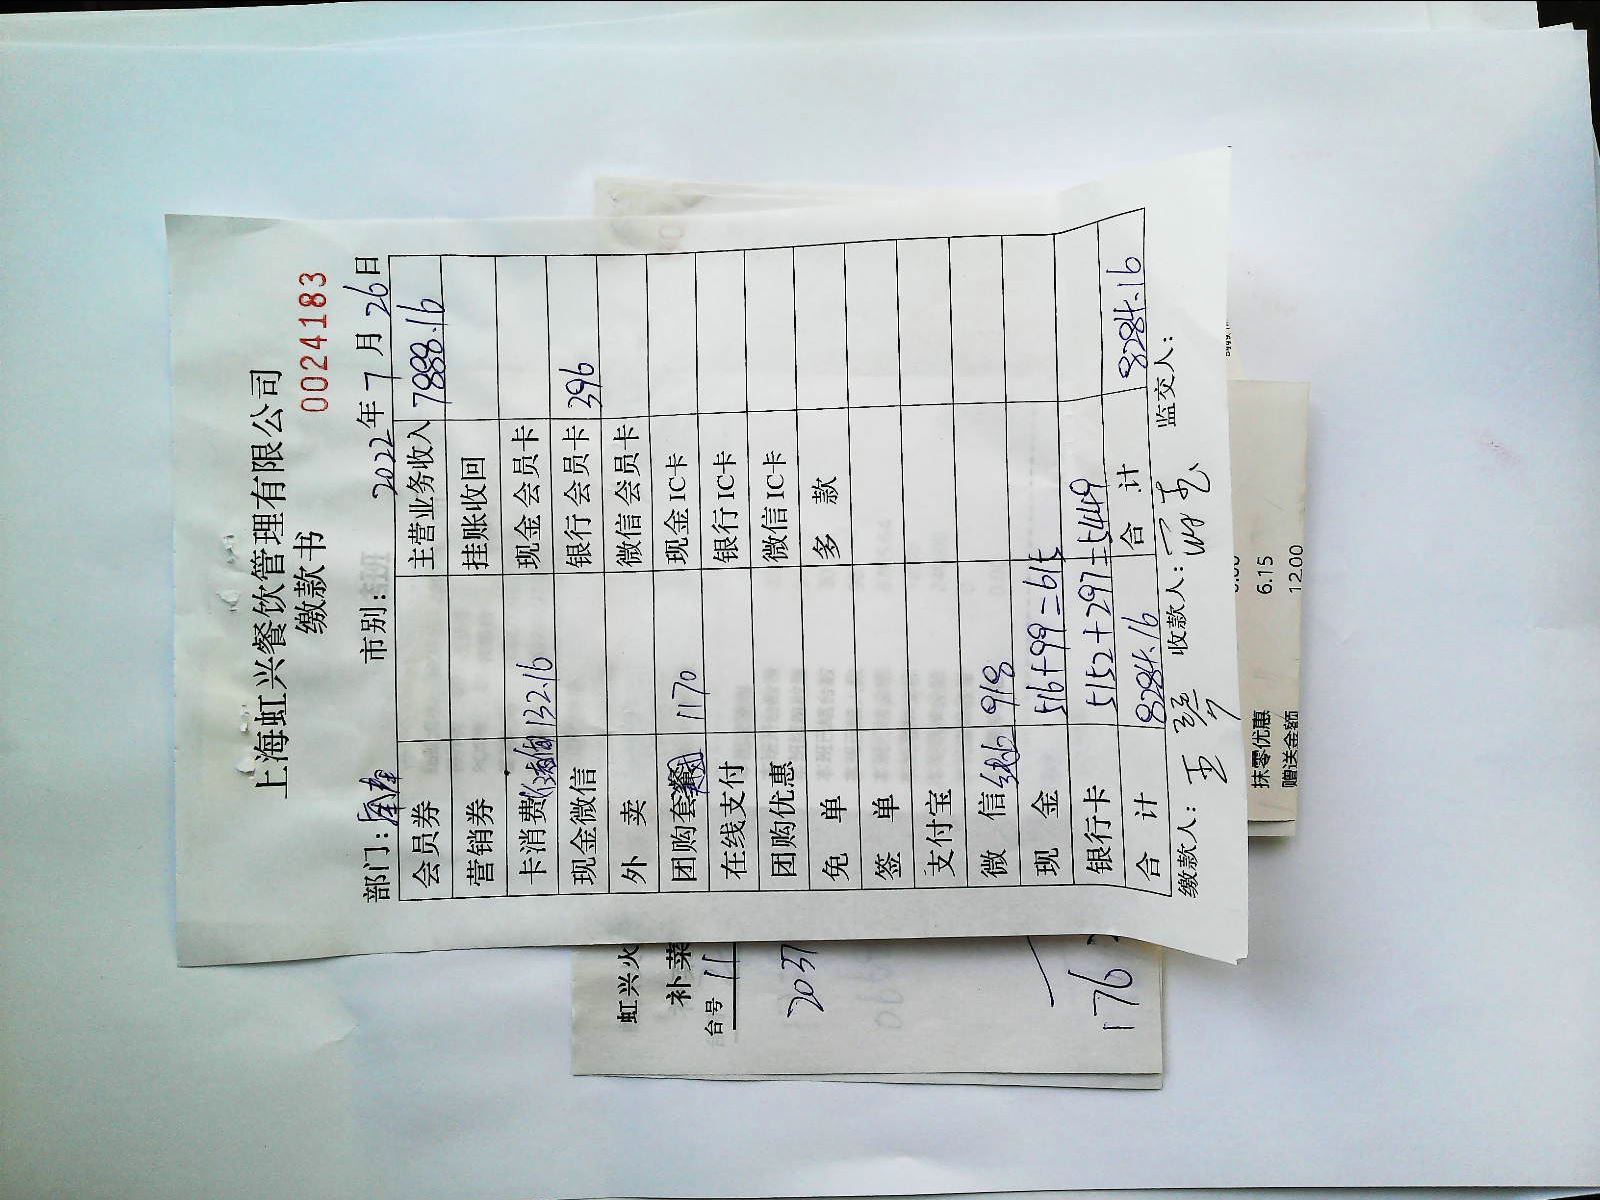 上海虹兴餐饮管理有限公司
缴款书
0024183
部门: 市别: 2022年7月26日
会员券 主营业务收入 7888.16
营销券 挂账收回
卡消费 132.16 现金会员卡
现金微信 银行会员卡 396
外 卖 微信会员卡
团购套餐 1170 现金IC卡
在线支付 银行IC卡
团购优惠 微信IC卡
免 单 多 款
签 单
支付宝
微 信 918
现 金 516+99=615
银行卡 5152+297=5449
合 计 8284.16 合 计 8284.16
缴款人: 王 收款人: 监交人:
虹兴火
补菜
台号 11
2037
176
6.15
抹零优惠
12.00
赠送金额